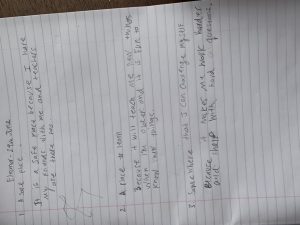 Ebony 29th June
1. A safe place.
It is a safe place because I have
my friends with me and teachers
are there too
2. A place to learn
Because it will teach me new things
when I'm older and it is fun to
know new things.
3. Somewhere that I can challenge myself
Because it makes me work harder
and help with hard questions.